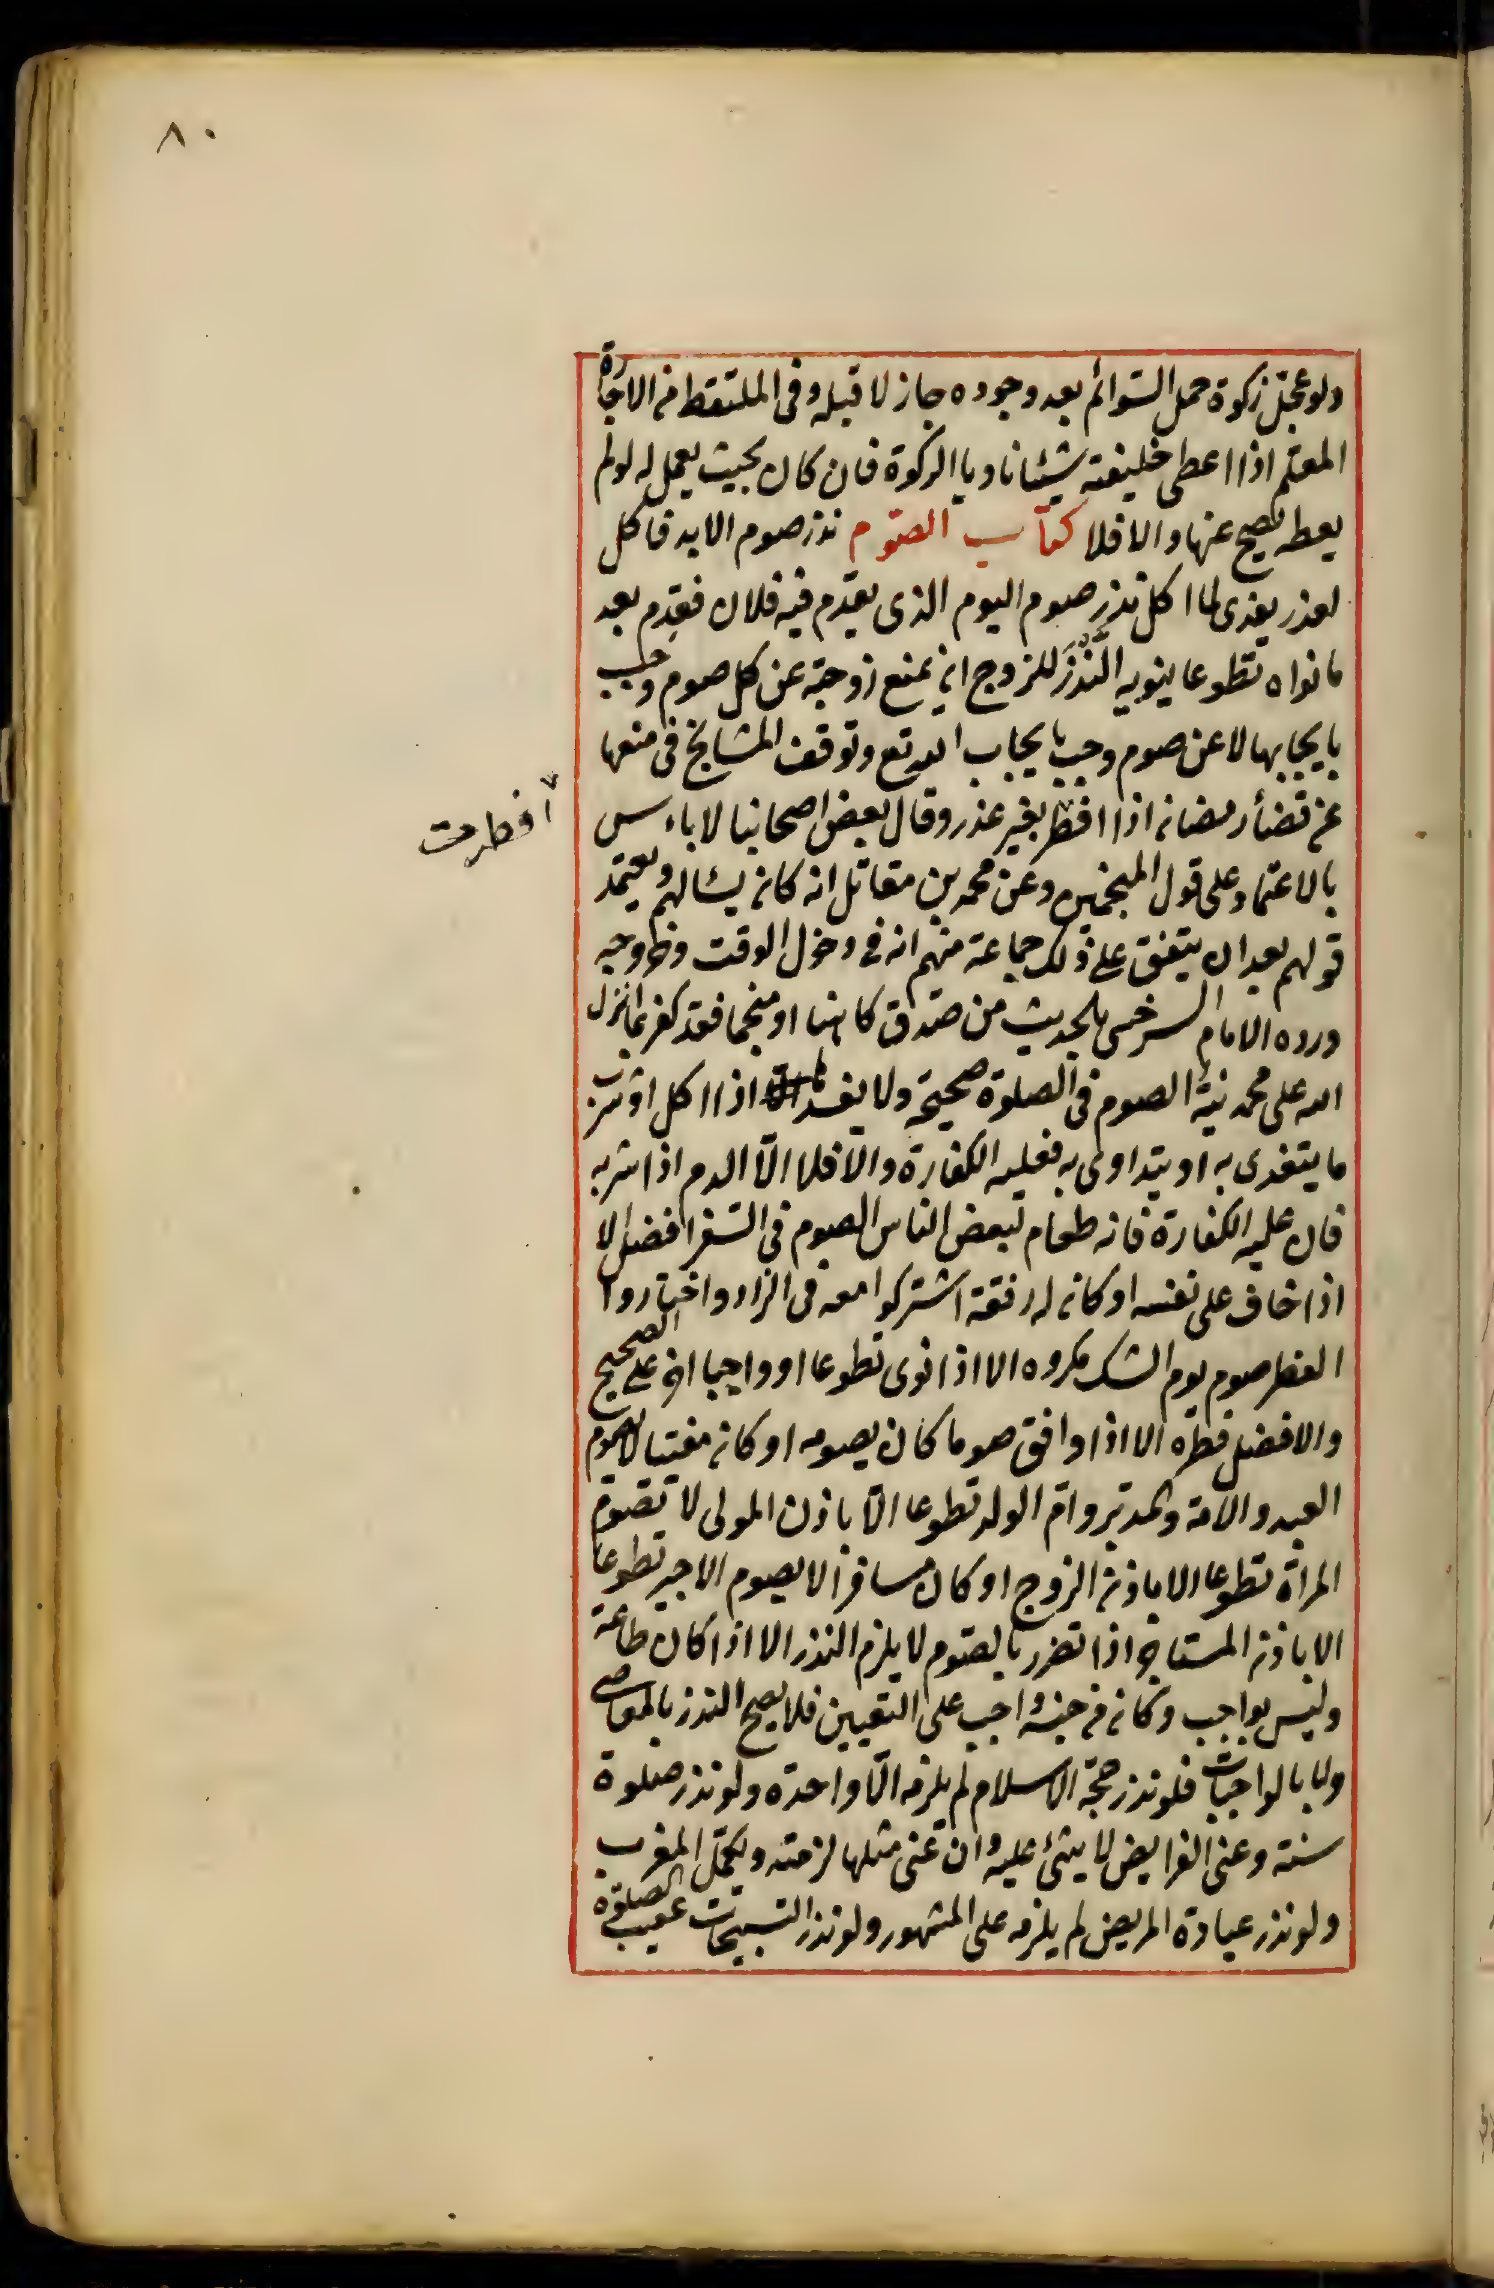 ٨٠
ولو عجّل زكوة حمل السّوائم بعد وجوده جاز لا قبله وفى الملتقط من الاجارة
المعلّم اذا اعطى خليفته شيئا ناويا الزكوة فان كان بحيث يعمل له لو لم
يعطه يصح عنها والا فلا كتاب الصّوم نذر صوم الابد فاكل
لعذر يفدى لما اكل نذر صوم اليوم الذى يقدم فيه فلان فقدِم بعد
ما نواه تطوعا ينويه النَّذْرَ للزوج ان يمنع زوجته عن كل صوم وجب
بايجابها لا عن صوم وجب بايجاب الله تع وتوقف المشايخ فى منعها
عن قضأ رمضان اذا افطر بغير عذر وقال بعض اصحابنا لا باءس
افطرت
بالاعتماد على قول المنجّمين وعن محمد بن مقاتل انه كان يسالهم ويعتمد
قولهم بعد ان يتفق على ذلك جماعة منهم انه فى دخول الوقت وخروجه
ورده الامام السرخسى بالحديث من صدق كاهنا او منجما فقد كفر بما انزل
الله على محمد نيّة الصوم فى الصلوة صحيحة ولا يفسدها اذا اكل او شرب
ما يتغدى به او يتداوى به فعليه الكفارة والّا فلا الّا الدم اذا شربه
فان عليه الكفارة فانه طعام لبعض الناس الصوم فى السّفر افضل الا
اذا خاف على نفسه او كان له رفقة اشتركوا معه فى الزاد واختاروا
الفطر صوم يوم الشك مكروه الا اذا نوى تطوعا او واجبا اخر على الصحيح
والافضل فطره الا اذا وافق صوما كان يصومه او كان مفتيا لا يصوم
العبد والامة والمدبّر وامّ الولد تطوعا الّا باذن المولى لا تصوم
المرأة تطوعا الا باذن الزوج او كان مسافرا لا يصوم الاجير تطوعا
الا باذن المستاجر اذا تضرر بالصّوم لا يلزم النذر الا اذا كان طاعة
وليس بواجب وكان من جنسه واجب على التعيين فلا يصح النذر بالمعاصى
ولا بالواجبات فلو نذر حجّة الاسلام لم يلزمه الّا واحدة ولو نذر صلوة
سنة وعنى الفرايض لا شئ عليه وان عنى مثلها لزمته ويكمّل المغرب
ولو نذر عيادة المريض لم يلزمه على المشهور ولو نذر التسبيحات عقيب الصلوة